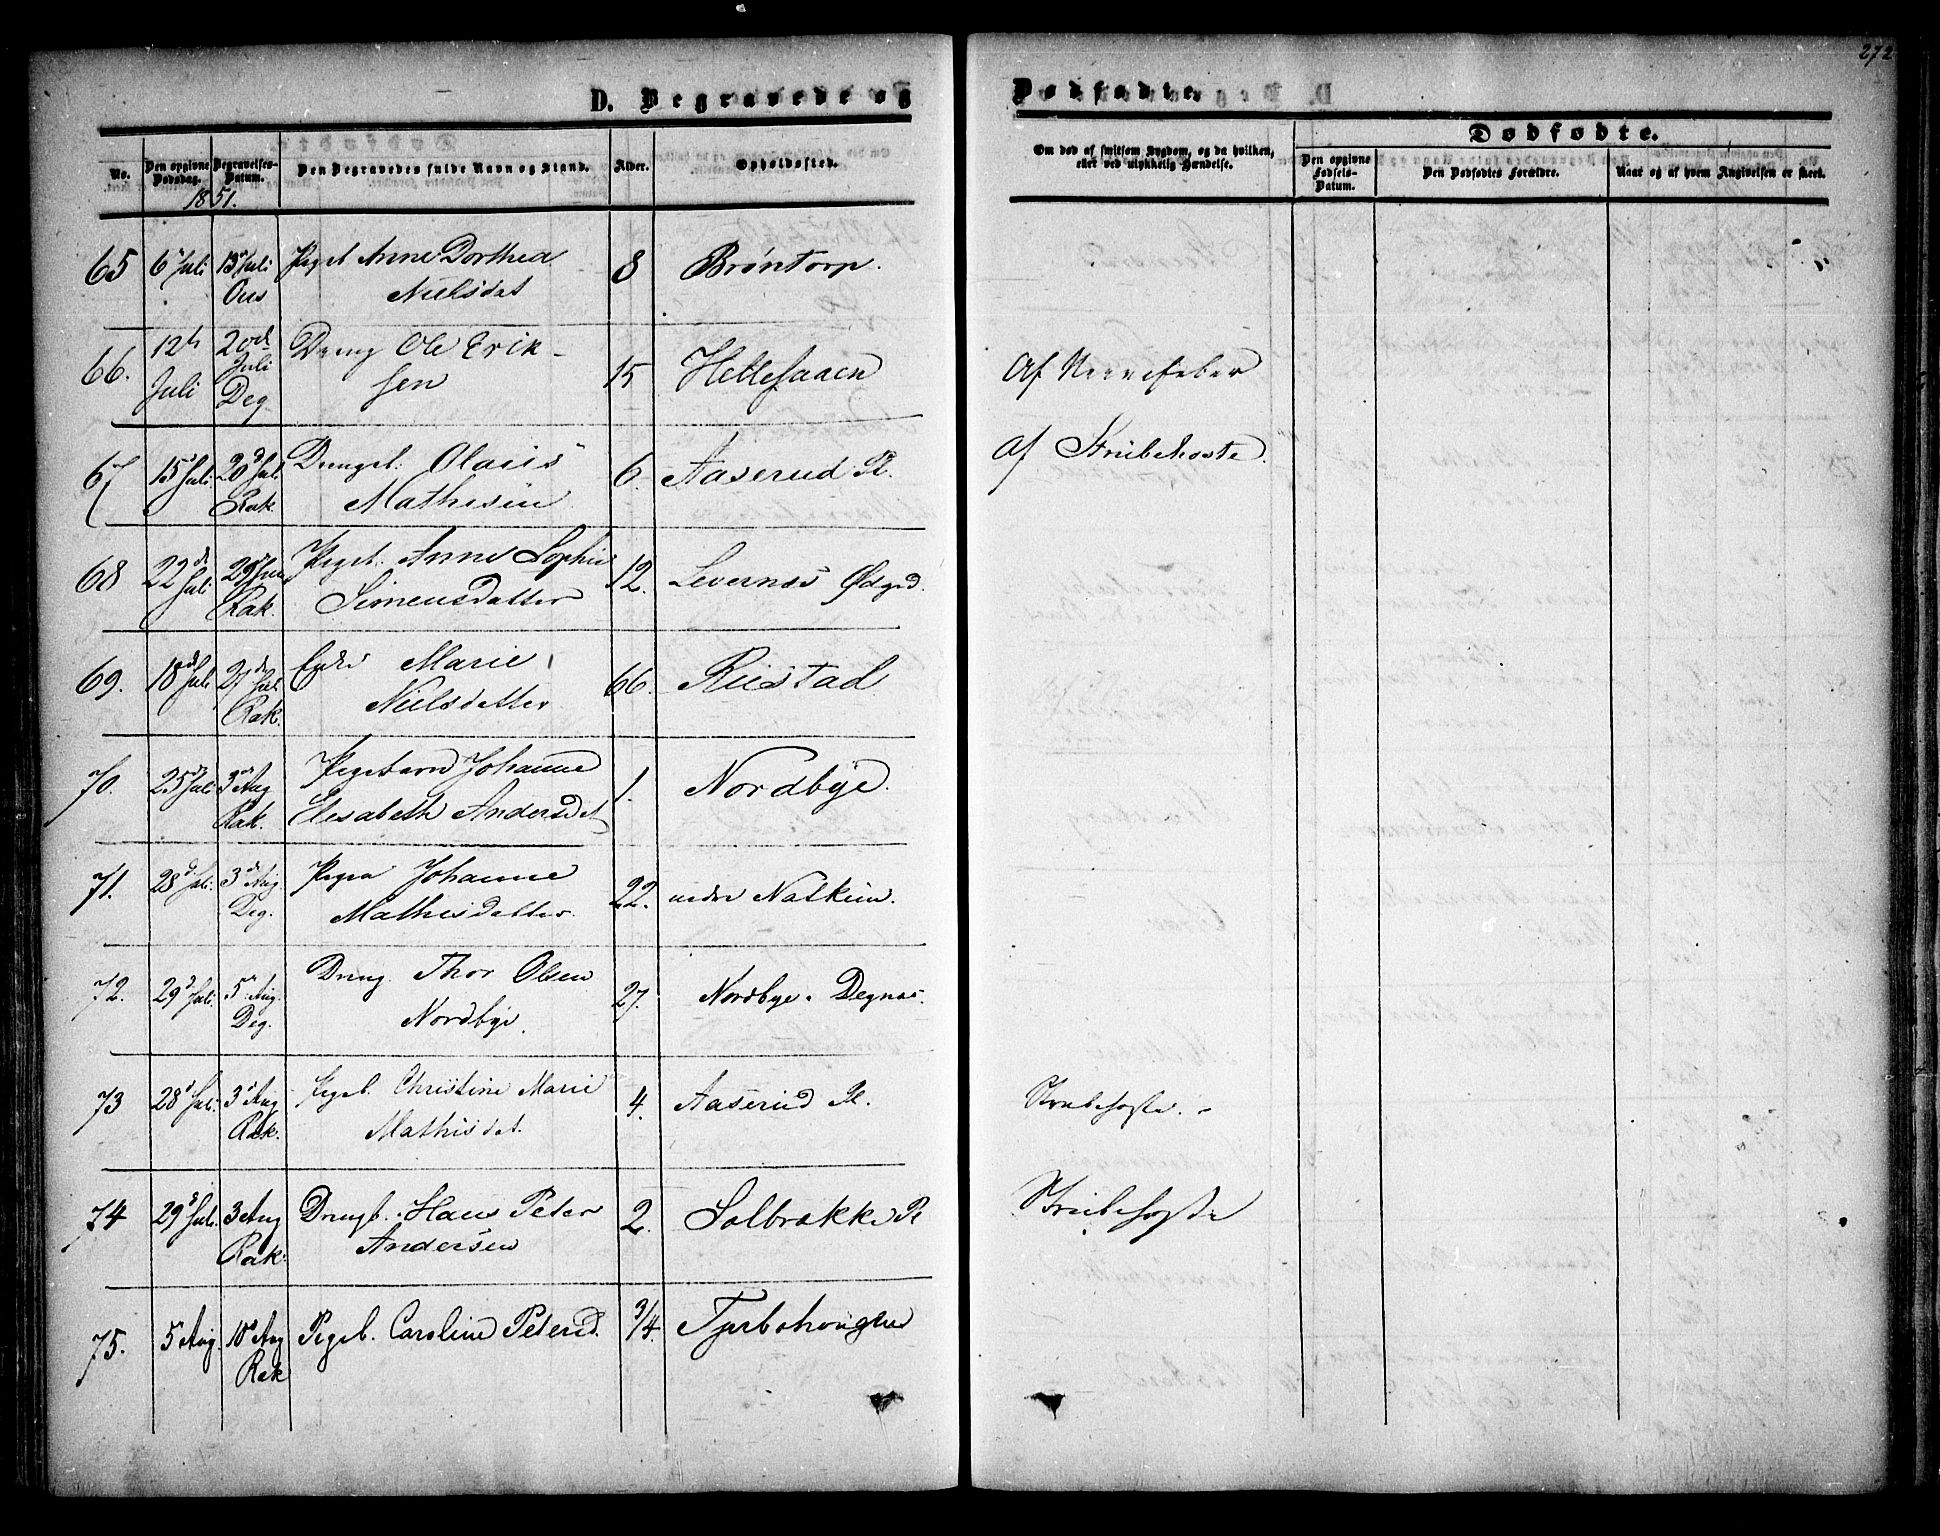 272
D. Begravede og Dødfødte.
No.
Den opgivne Dødsdag.
Begravelses-Datum.
Den Begravedes fulde Navn og Stand.
Alder.
Opholdssted.
Om død af smitsom Sygdom, og da hvilken,
eller ved ulykkelig Hændelse.
Dødfødte.
Den opgivne Fødsels-Datum.
Den Dødfødtes Forældre.
Naar og af hvem Angivelsen er skeet.
1851.
65 6 Juli 13 Juli Pigeb. Anne Dorthea 8 Brøntorp.
Nielsdat
66. 12te Juli 20de Juli Deg Dreng Ole Erik- 15 Hellesaaen Af Nervefeber
sen
67 15 Juli 20d Juli Rak Drengeb. Olaus 6. Aaserud Pl. Af Strubehoste.
Mathesen
68 22de Juli Rak. Pigeb. Anne Sophie 12. Levernæs
Simensdatter
69. 18d Juli 27de Juli Rak. Marie 66. Riistad
Nielsdatter
70. 25de Juli 3de Aug Rak. Pigebarn Johanne 1. Nordbye.
Elesabeth Andersdat
71. 28d Juli. 3de Aug. Deg. Pigen Johanne 22. nedre
Mathisdatter.
72. 29d Juli. 5 Aug. Deg. Dreng Thor Olsen 27. Nordbye. Degnæs.
Nordbye.
73 28d Juli. 3d Aug Rak. Pigeb. Christine Marie 4. Aaserud Pl. Strubehoste. -
Mathisdat.
74 29d Juli. 3 Aug Rak. Drengb. Hans Peter 2. Solbrække Pl Strubehoste
Andersen
75. 5 Aug. 10d Aug Rak Pigeb. Caroline Petersd. 3/4